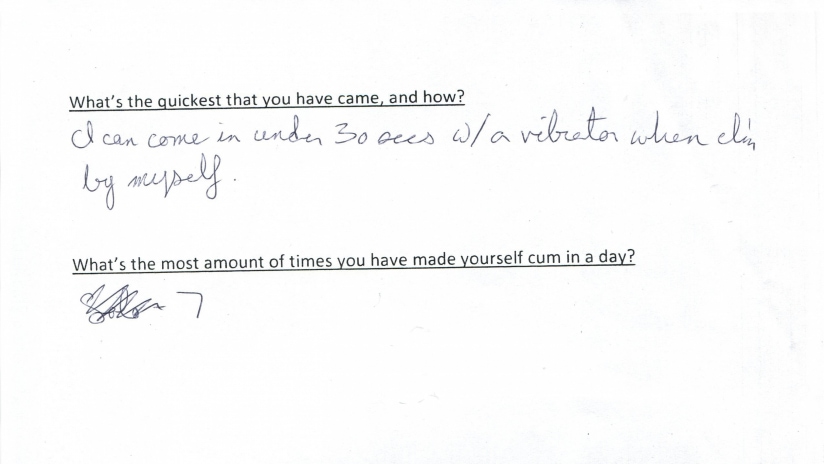 What's the quickest that you have came, and how?
I can come in under 30 secs w/ a vibrator when
by myself.
What's the most amount of times you have made yourself cum in a day?
7